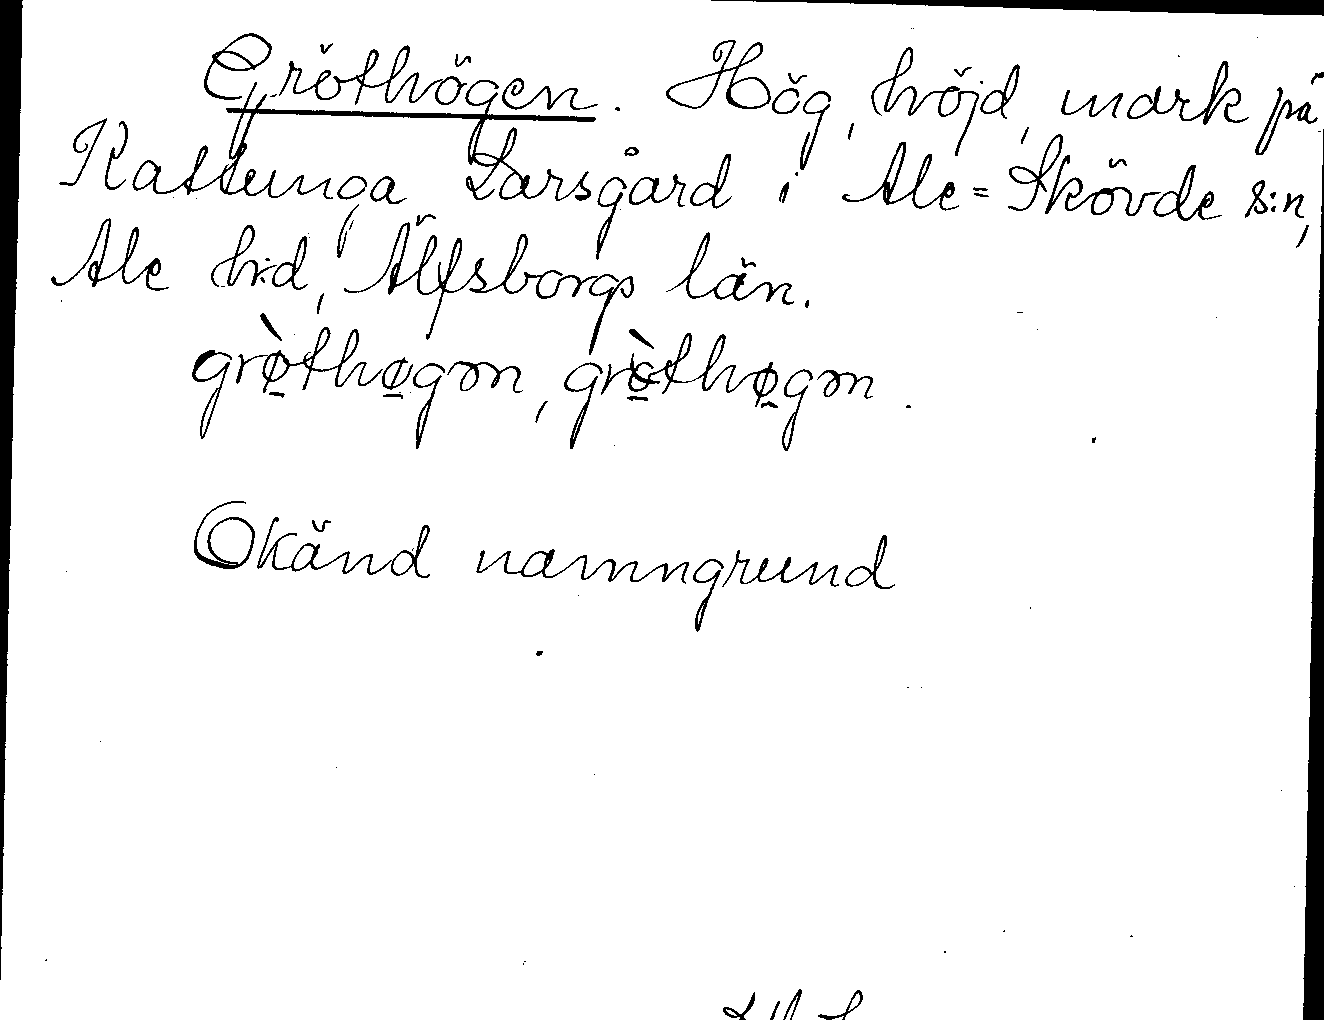 Gröthögen. Hög, höjd, mark på
Kattunga Larsgård i Ale=Skövde s:n,
Ale h:d, Älfsborgs län.
grø̱̀thø̱gən, grö̱̀thø̱gən.
Okänd namngrund